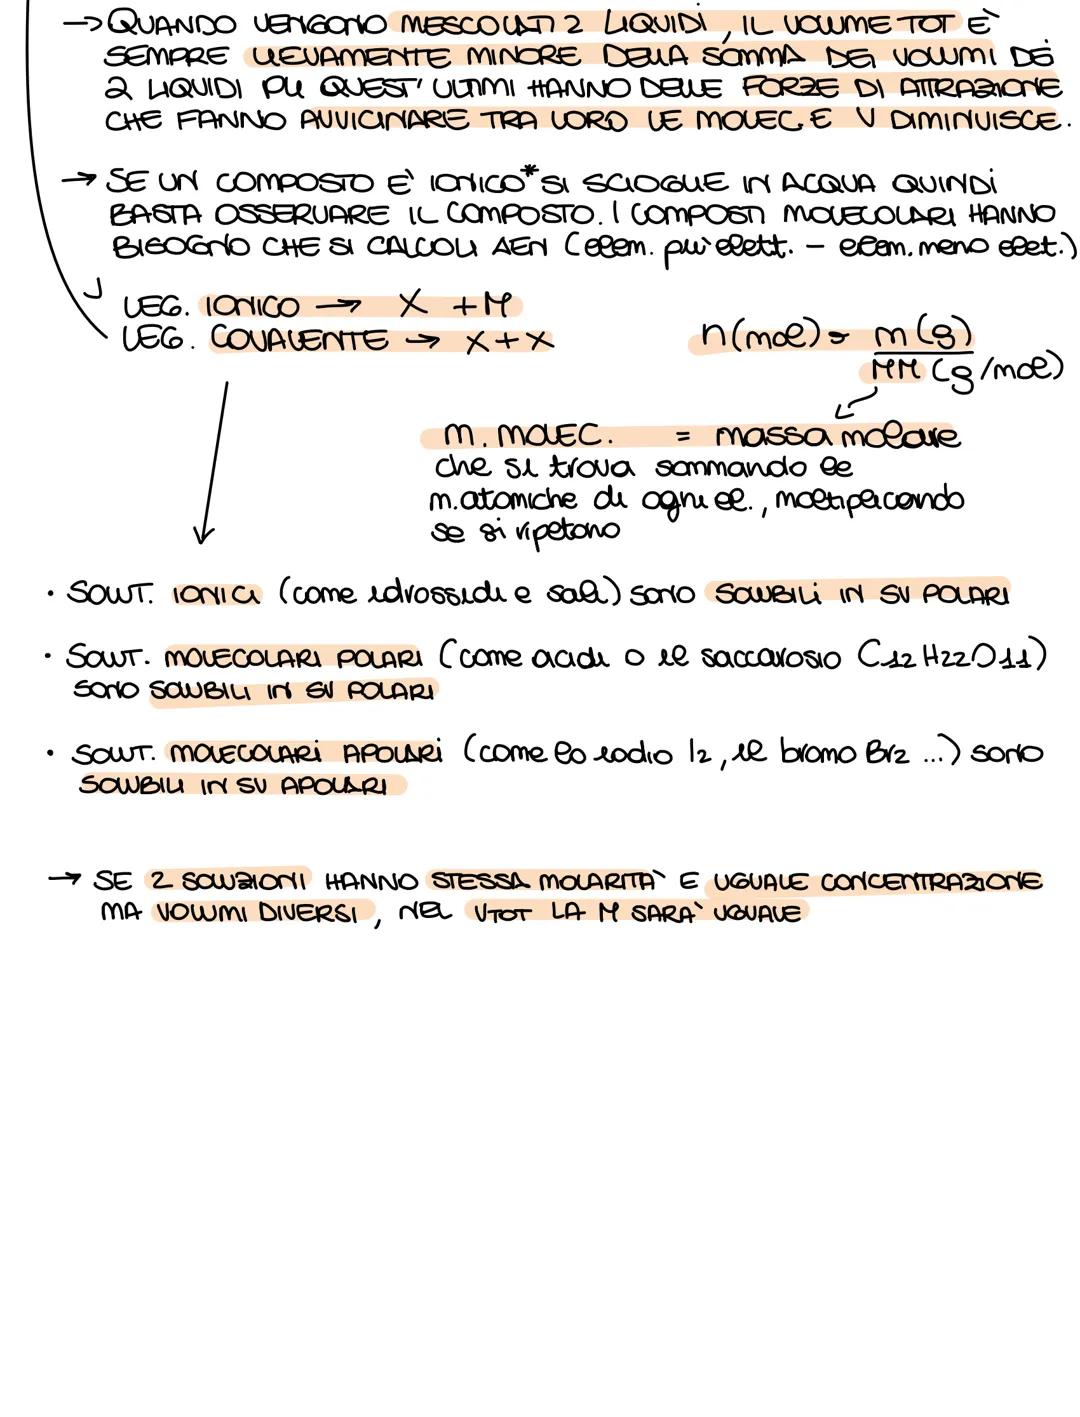 → QUANDO VENGONO MESCOLATI 2 LIQUIDI, IL VOLUME TOT E'
SEMPRE LIEVAMENTE MINORE DELLA SOMMA DEI VOLUMI DEI
2 LIQUIDI PK QUEST'ULTIMI HANNO DELLE FORZE DI ATTRAZIONE
CHE FANNO AVVICINARE TRA LORO LE MOLEC. E V DIMINUISCE.
→ SE UN COMPOSTO E' IONICO* SI SCIOGLIE IN ACQUA QUINDI
BASTA OSSERVARE IL COMPOSTO. I COMPOSTI MOLECOLARI HANNO
BISOGNO CHE SI CALCOLI ΔEN (elem. più elett. - elem. meno elet.)
LEG. IONICO → X + M
LEG. COVALENTE → X + X
n (mol) = m (g)
MM (g/mol)
m. MOLEC. = massa molare
che si trova sommando le
m. atomiche di ogni el., moltiplicando
se si ripetono
• SOLUT. IONICI (come idrossidi e sali) sono SOLUBILI IN SV POLARI
• SOLUT. MOLECOLARI POLARI (come acidi o il saccarosio C12H22O11)
sono SOLUBILI IN SV POLARI
• SOLUT. MOLECOLARI APOLARI (come lo iodio I2, il bromo Br2 ...) sono
SOLUBILI IN SV APOLARI
→ SE 2 SOLUZIONI HANNO STESSA MOLARITA' E UGUALE CONCENTRAZIONE
MA VOLUMI DIVERSI, NEL VTOT LA M SARA' UGUALE